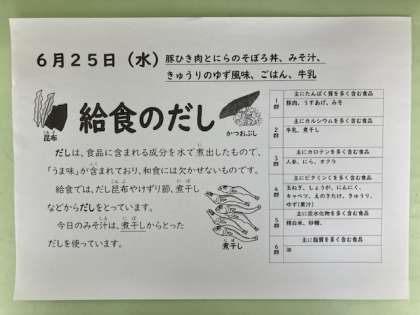 6月25日（水）
豚ひき肉とにらのそぼろ丼、みそ汁、
きゅうりのゆず風味、ごはん、牛乳
給食のだし
こんぶ
昆布
かつおぶし
だしは、食品に含まれる成分を水で煮出したもので、
「うま味」が含まれており、和食には欠かせないものです。
給食では、だし昆布やけずり節、煮干し
などからだしをとっています。
今日のみそ汁は、煮干しからとった
だしを使っています。
にぼ
煮干し
1群
主にたんぱく質を多く含む食品
豚肉、うすあげ、みそ
2群
主にカルシウムを多く含む食品
牛乳、煮干し
3群
主にカロテンを多く含む食品
人参、にら、オクラ
4群
主にビタミンCを多く含む食品
玉ねぎ、しょうが、にんにく、
キャベツ、えのきたけ、きゅうり、
ゆず(果汁)
5群
主に炭水化物を多く含む食品
精白米、砂糖、
6群
主に脂質を多く含む食品
油